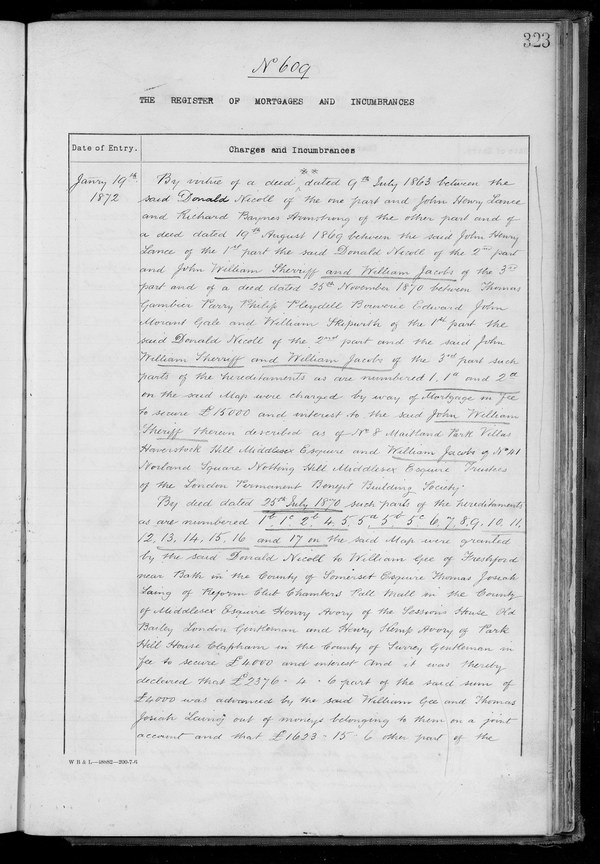 323
No 609
THE REGISTER OF MORTGAGES AND INCUMBRANCES
Date of Entry.
Charges and Incumbrances
Janry 19th
1872
By virtue of a deed dated 9th July 1863 between the
said Donald Nicoll of the one part and John Henry Lance
and Richard Baynes Armstrong of the other part and of
a deed dated 19th August 1869 between the said John Henry
Lance of the 1st part the said Donald Nicoll of the 2nd part
and John William Sherriff and William Jacobs of the 3rd
part and of a deed dated 25th November 1870 between Thomas
Gambier Parry Philip Pleydell Bouverie Edward John
Morant Gale and William Skipwith of the 1st part the
said Donald Nicoll of the 2nd part and the said John
William Sherriff and William Jacobs of the 3rd part such
parts of the hereditaments as are numbered 1, 1a and 2a
on the said Map were charged by way of Mortgage in fee
to secure £15000 and interest to the said John William
Sheriff therein described as of No 8 Maitland Park Villas
Haverstock Hill Middlesex Esquire and William Jacobs of No 41
Norland Square Notting Hill Middlesex Esquire Trustees
of the London Permanent Benefit Building Society.
By deed dated 25th July 1870 such parts of the hereditaments
as are numbered 1b, 1c, 2b, 4, 5, 5a, 5b, 5c, 6, 7, 8, 9, 10, 11,
12, 13, 14, 15, 16 and 17 on the said Map were granted
by the said Donald Nicoll to William Gee of Freshford
near Bath in the County of Somerset Esquire Thomas Josiah
Laing of Reform Club Chambers Pall Mall in the County
of Middlesex Esquire Henry Avory of the Sessions House Old
Bailey London Gentleman and Henry Kemp Avory of Park
Hill House Clapham in the County of Surrey Gentleman in
fee to secure £4000 and interest And it was thereby
declared that £2376 - 4 - 6 part of the said sum of
£4000 was advanced by the said William Gee and Thomas
Josiah Laing out of moneys belonging to them on a joint
account and that £1623 - 15 - 6 other part of the
W B & L—